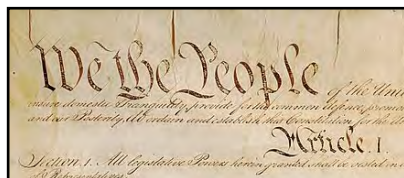 We the People of the Unit
insure domestic Tranquility, provide for the common defence, promote
and our Posterity, do ordain and establish this Constitution for the
Article. I.
Section. 1. All legislative Powers herein granted shall be vested in a
of Representatives.